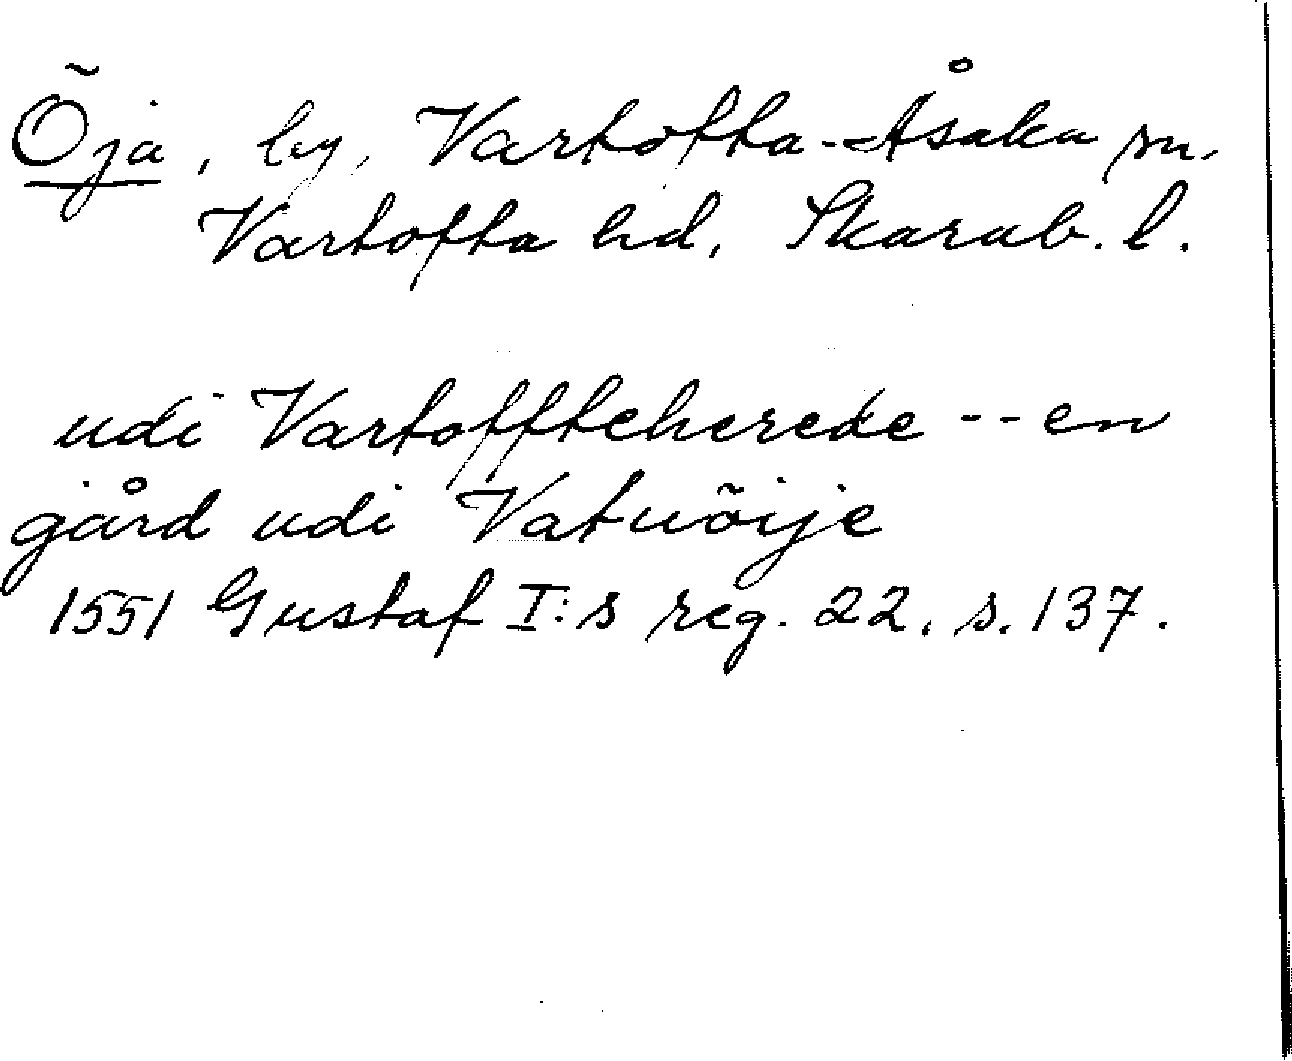 Öja, by, Vartofta-Åsaka sn,
Vartofta hd, Skarab. l.
udi Vartoffteherede -- en
gård udi Vatuöije
1551 Gustaf I:s reg. 22, s. 137.